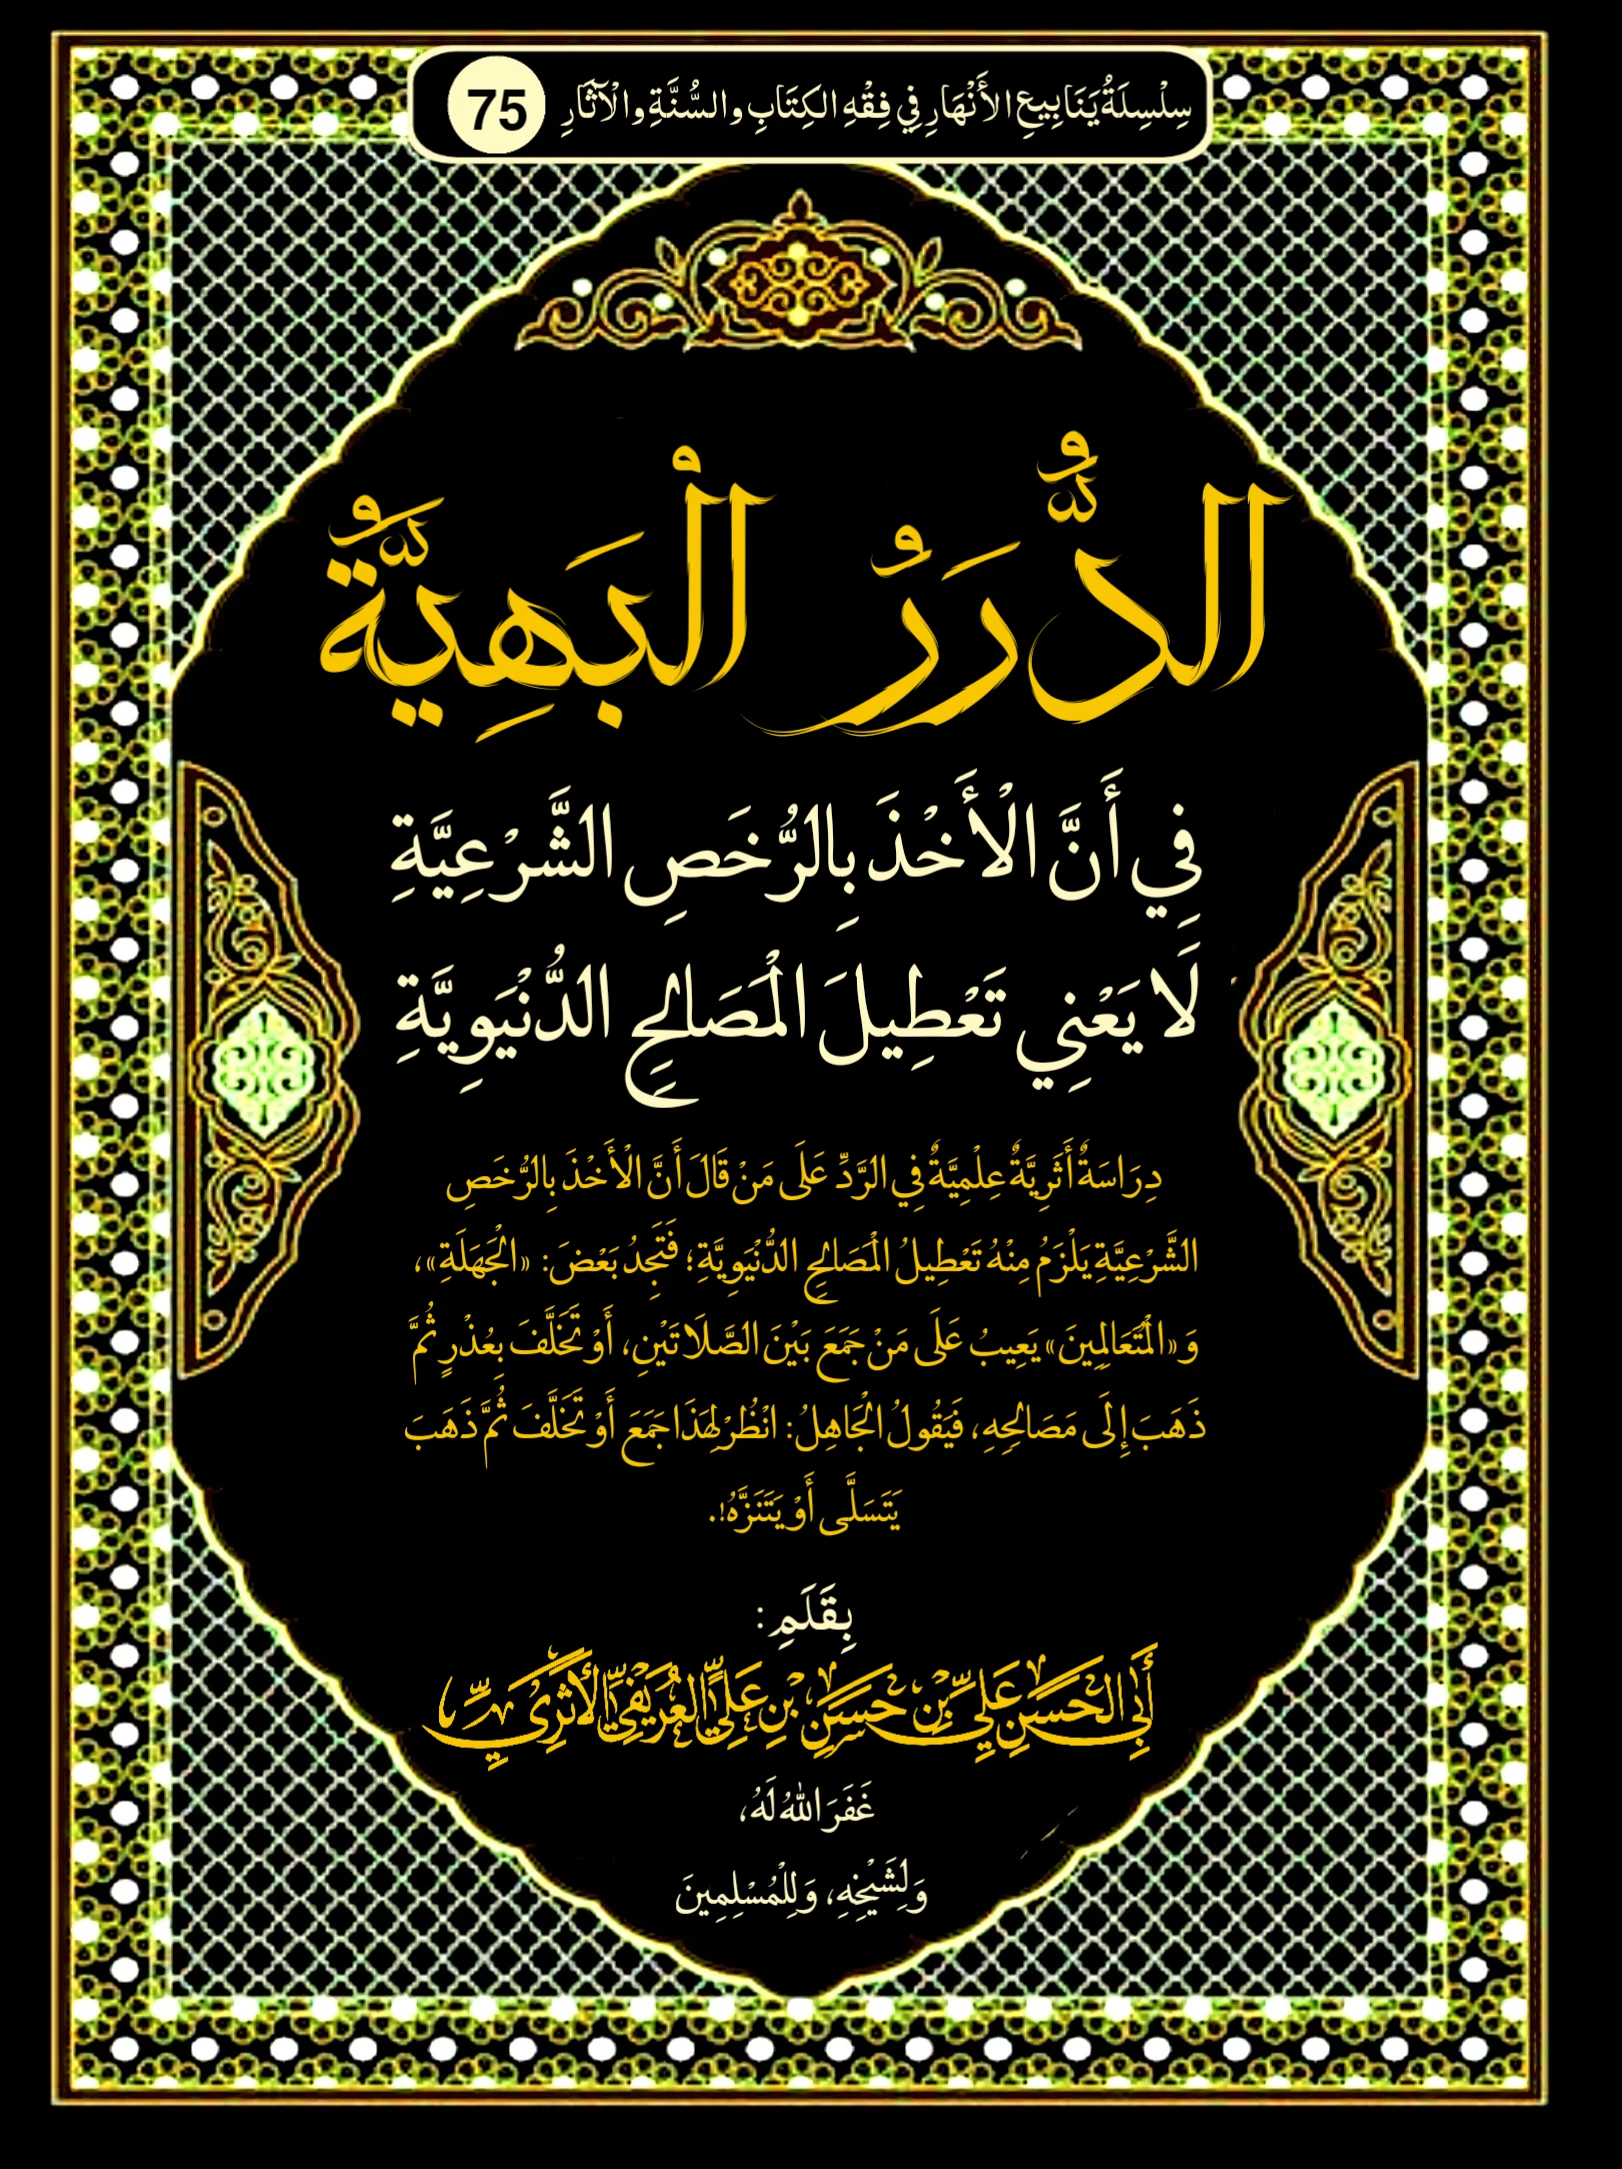 سِلْسِلَةُ يَنَابِيعِ الأَنْهَارِ فِي فِقْهِ الكِتَابِ والسُّنَّةِ والْآثَارِ 75
الدُّرَرُ الْبَهِيَّةُ
فِي أَنَّ الْأَخْذَ بِالرُّخَصِ الشَّرْعِيَّةِ
لَا يَعْنِي تَعْطِيلَ الْمَصَالِحِ الدُّنْيَوِيَّةِ
دِرَاسَةٌ أَثَرِيَّةٌ عِلْمِيَّةٌ فِي الرَّدِّ عَلَى مَنْ قَالَ أَنَّ الْأَخْذَ بِالرُّخَصِ
الشَّرْعِيَّةِ يَلْزَمُ مِنْهُ تَعْطِيلُ الْمَصَالِحِ الدُّنْيَوِيَّةِ؛ فَتَجِدُ بَعْضَ: «الْجَهَلَةِ»،
وَ«الْمُتَعَالِمِينَ» يَعِيبُ عَلَى مَنْ جَمَعَ بَيْنَ الصَّلَاتَيْنِ، أَوْ تَخَلَّفَ بِعُذْرٍ ثُمَّ
ذَهَبَ إِلَى مَصَالِحِهِ، فَيَقُولُ الْجَاهِلُ: انْظُرْ لِهَذَا جَمَعَ أَوْ تَخَلَّفَ ثُمَّ ذَهَبَ
يَتَسَلَّى أَوْ يَتَنَزَّهُ!.
بِقَلَمِ:
أَبِي الْحَسَنِ عَلِيِّ بْنِ حَسَنِ بْنِ عَلِيٍّ الْعُرَيْفِيِّ الْأَثَرِيِّ
غَفَرَ اللهُ لَهُ،
وَلِشَيْخِهِ، وَلِلْمُسْلِمِينَ